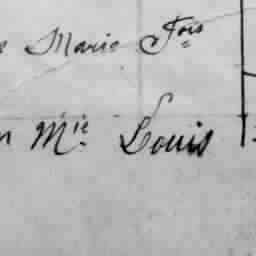 Marie Fois
Mie Louis